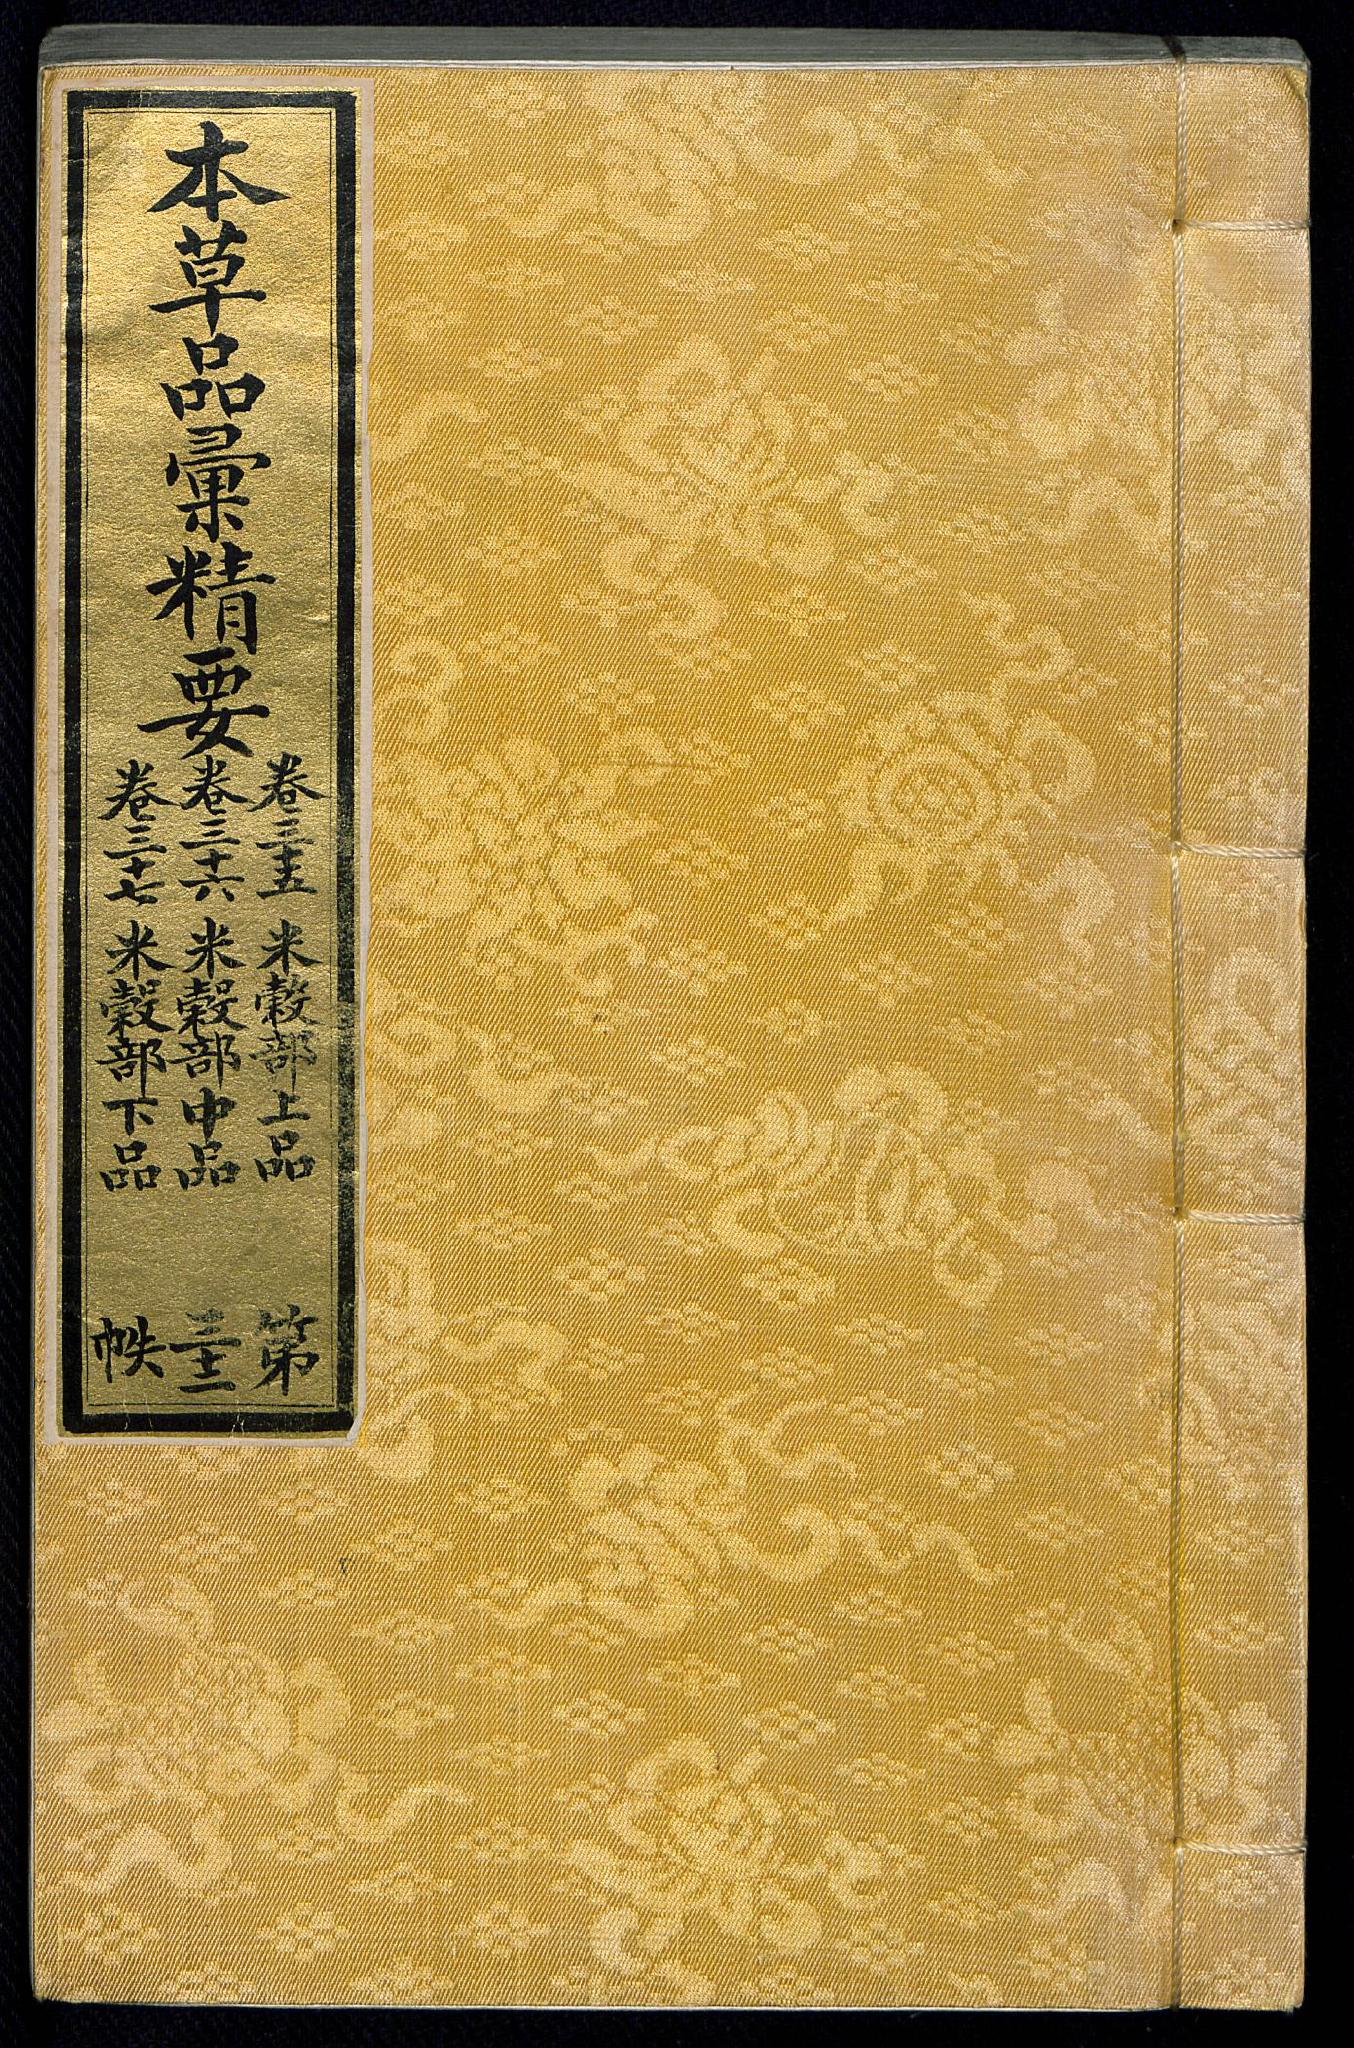 本草品彙精要
卷三十五 米穀部上品
卷三十六 米穀部中品
卷三十七 米穀部下品
第
三十二
帙